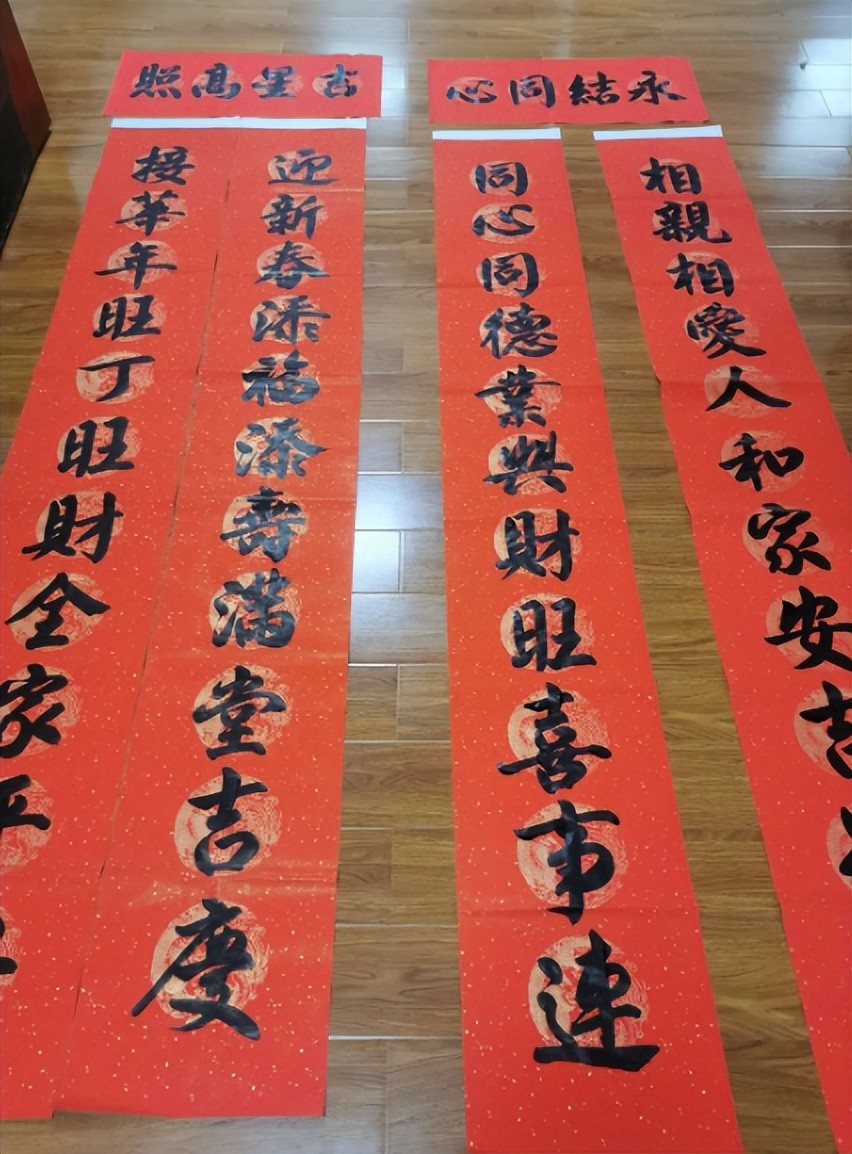 吉星高照
迎新春添福添壽滿堂吉慶
接華年旺丁旺財全家平
永結同心
相親相愛人和家安吉
同心同德業興財旺喜事連